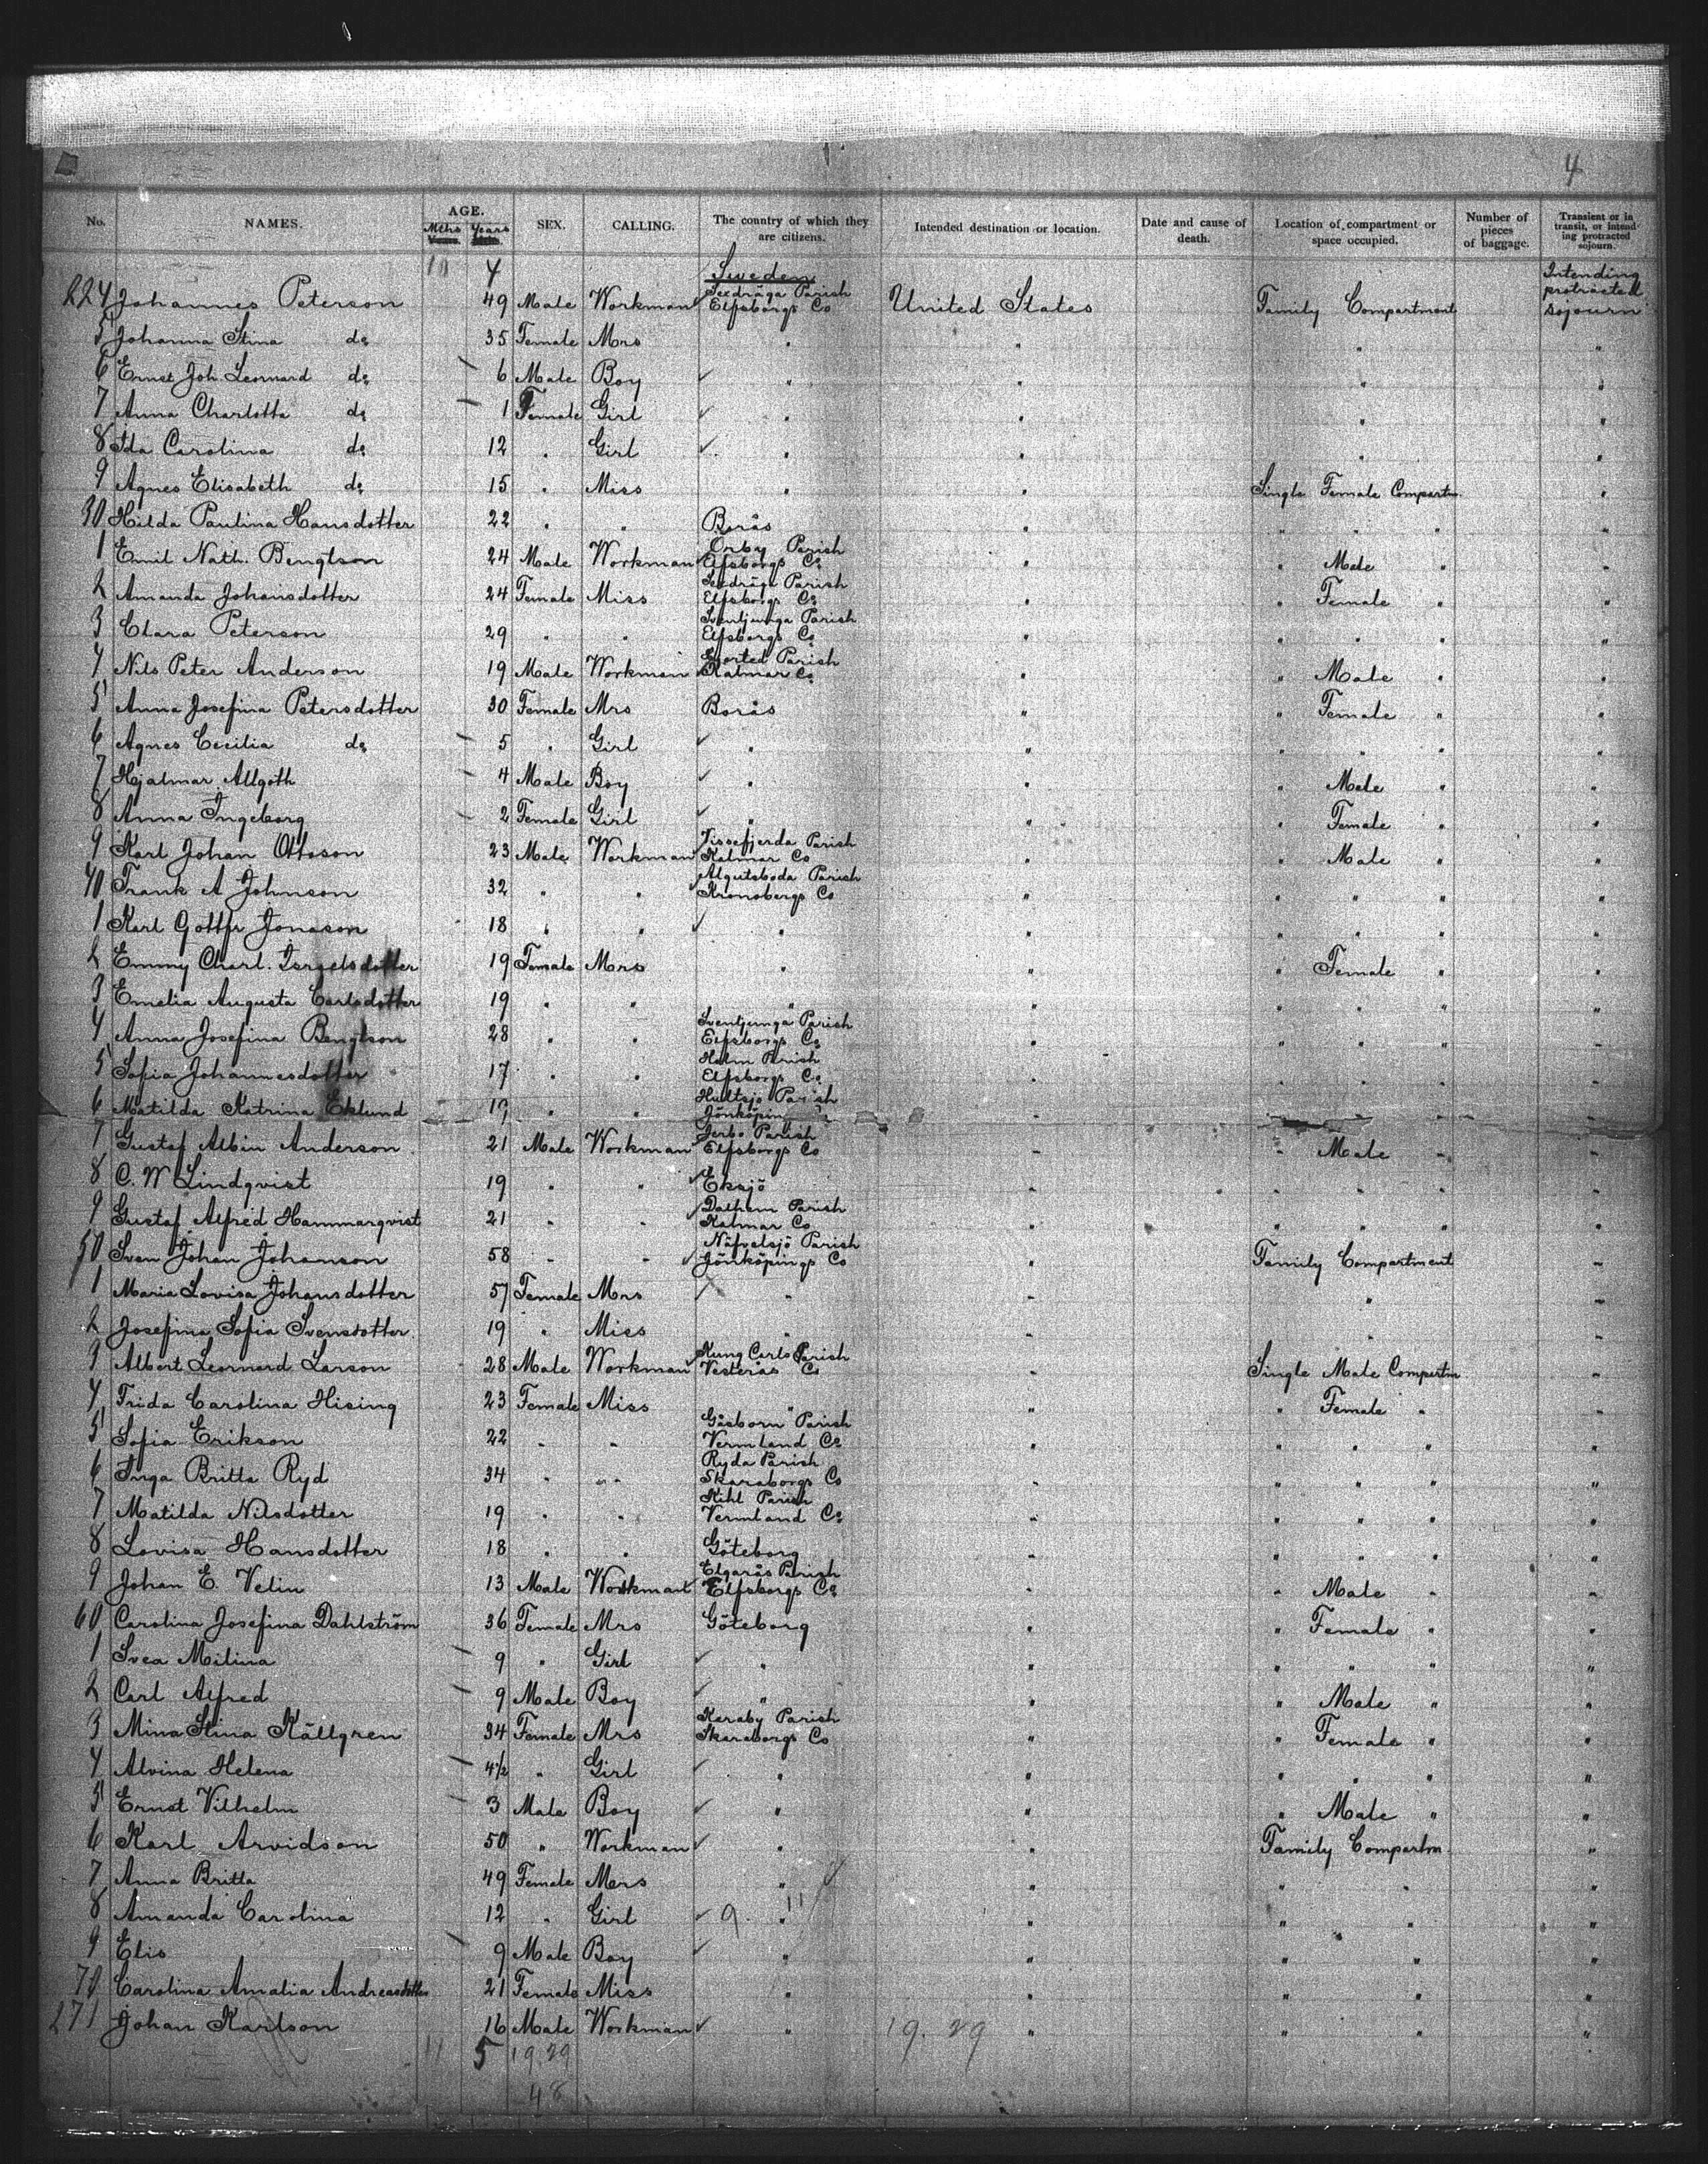 4
No. NAMES. AGE. Mths Years SEX. CALLING. The country of which they are citizens. Intended destination or location. Date and cause of death. Location of compartment or space occupied. Number of pieces of baggage. Transient or in transit, or intending protracted sojourn.
10 4 Sweden Intending protracted sojourn
224 Johannes Peterson 49 Male Workman Sexdräga Parish Elfsborgs Co United States Family Compartment
5 Johanna Stina do 35 Female Mrs " " " "
6 Ernst Joh. Leonard do 6 Male Boy " " " "
7 Anna Charlotta do 1 Female Girl " " " "
8 Ida Carolina do 12 " Girl " " " "
9 Agnes Elisabeth do 15 " Miss " " Single Female Compartm. "
30 Hilda Paulina Hansdotter 22 " " Borås " " " " "
1 Emil Nath. Bengtson 24 Male Workman Örby Parish Elfsborgs Co " " Male " "
2 Amanda Johansdotter 24 Female Miss Sexdräga Parish Elfsborgs Co " " Female " "
3 Clara Peterson 29 " " Svenljunga Parish Elfsborgs Co " " " " "
4 Nils Peter Anderson 19 Male Workman Parish Kalmar Co " " Male " "
5 Anna Josefina Petersdotter 30 Female Mrs Borås " " Female " "
6 Agnes Cecilia do 5 " Girl " " " " " "
7 Hjalmar Allgoth 4 Male Boy " " " Male " "
8 Anna Ingeborg 2 Female Girl " " " Female " "
9 Karl Johan Ottoson 23 Male Workman Vissefjerda Parish Kalmar Co " " Male " "
40 Frank A Johnson 32 " " Algutsboda Parish Kronobergs Co " " " " "
1 Karl Gottfr Jonason 18 " " " " " " " "
2 Emmy Charl. Israelsdotter 19 Female Mrs " " " Female " "
3 Emelia Augusta Carlsdotter 19 " " " " " " " "
4 Anna Josefina Bengtson 28 " " Svenljunga Parish Elfsborgs Co " " " " "
5 Sofia Johannesdotter 17 " " Holm Parish Elfsborgs Co " " " " "
6 Matilda Katrina Eklund 19 " " Hultsjö Parish Jönköpin " " " " "
7 Gustaf Albin Anderson 21 Male Workman Jerbo Parish Elfsborgs Co " " Male " "
8 C. W Lindqvist 19 " " Eksjö " " " " "
9 Gustaf Alfred Hammarqvist 21 " " Dalhem Parish Kalmar Co " " " " "
50 Sven Johan Johanson 58 " " Näfvelsjö Parish Jönköpings Co " Family Compartment "
1 Maria Lovisa Johansdotter 57 Female Mrs " " " "
2 Josefina Sofia Svensdotter 19 " Miss " " " "
3 Albert Leonnard Larson 28 Male Workman Kung Carls Parish Vesterås Co " Single Male Compartm "
4 Frida Carolina Hising 23 Female Miss " " " Female " "
5 Sofia Erikson 22 " " Gåsborn Parish Vermland Co " " " " "
6 Inga Britta Ryd 34 " " Ryda Parish Skaraborgs Co " " " " "
7 Matilda Nilsdotter 19 " " Kihl Parish Vermland Co " " " " "
8 Lovisa Hansdotter 18 " " Göteborg " " " " "
9 Johan E. Velin 13 Male Workman Elgarås Parish Elfsborgs Co " " Male " "
60 Carolina Josefina Dahlström 36 Female Mrs Göteborg " " Female " "
1 Svea Milina 9 " Girl " " " " " "
2 Carl Alfred 9 Male Boy " " " Male " "
3 Mina Stina Källgren 34 Female Mrs Karaby Parish Skaraborgs Co " " Female " "
4 Alvina Helena 4½ " Girl " " " " " "
5 Ernst Vilhelm 3 Male Boy " " " Male " "
6 Karl Arvidson 50 " Workman " " Family Compartm "
7 Anna Britta 49 Female Mrs " " " " "
8 Amanda Carolina 12 " Girl 9. 11 " " " " "
9 Elis 9 Male Boy " " " " "
70 Carolina Amalia Andreasdotter 21 Female Miss " " " " "
271 Johan Karlson 16 Male Workman " 19. 29 " " " "
11 5 19.29
48